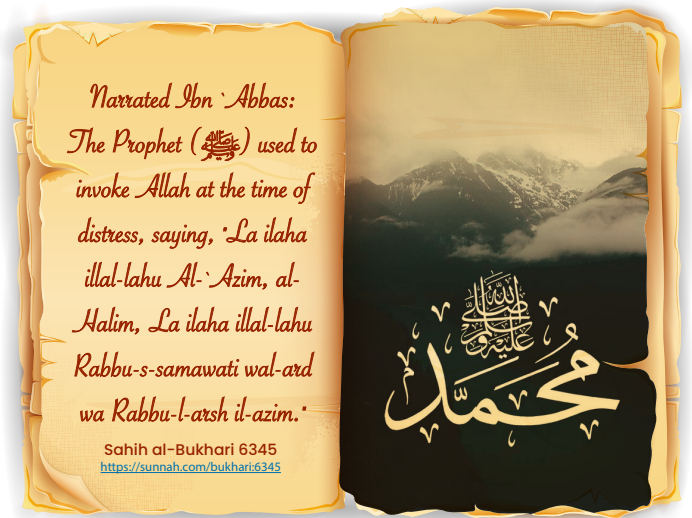 Narrated Ibn `Abbas:
The Prophet (ﷺ) used to
invoke Allah at the time of
distress, saying, "La ilaha
illal-lahu Al-`Azim, al-
Halim, La ilaha illal-lahu
Rabbu-s-samawati wal-ard
wa Rabbu-l-arsh il-azim."
Sahih al-Bukhari 6345
https://sunnah.com/bukhari:6345
صلى الله عليه وسلم
محمد